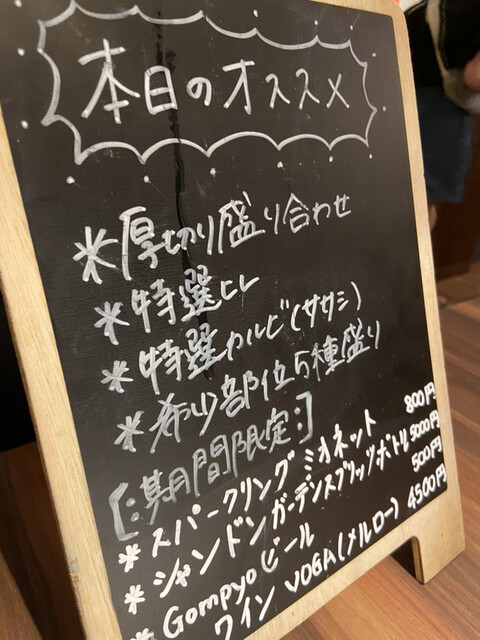 本日のオススメ
*厚切り盛り合わせ
*特選ヒレ
*特選カルビ(ササミ)
*希少部位5種盛り
[:期間限定:]
*スパークリングミオネット 800円
*シャンドンガーデンスプリッツボトル 5000円
*Gompyoビール 500円
*ワインVOGA(メルロー) 4500円